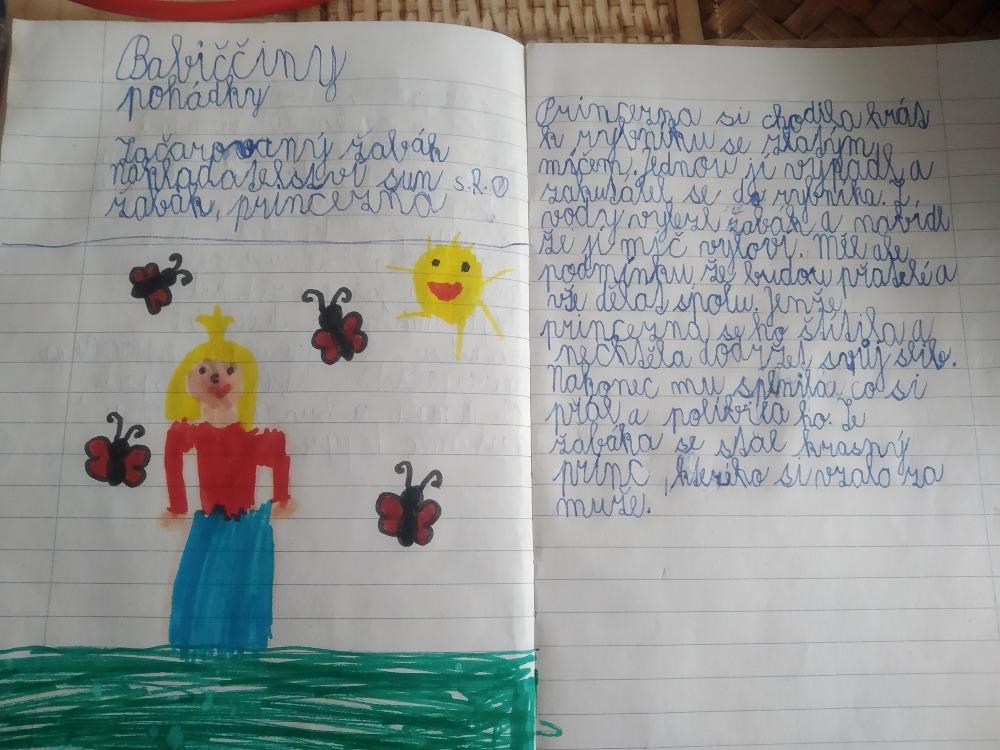 Babiččiny
pohádky
Začarovaný žabák
nakladatelství sun s.r.o
žabák, princezna
Princezna si chodila hrás
k rybníku se zlatým
míčem. Jednou jí vypadl a
zakutálel se do rybníka. Z
vody vylezl žabák a nabídl
že jí míč vyloví. Měl ale
podmínku že budou přatelé a
vše dělat spolu. Jenže
princezna se ho štítila a
nechtěla dodržet svůj slib.
Nakonec mu splnila co si
přál a políbila ho. Ze
žabáka se stal krasný
princ, kterého si vzala za
muže.